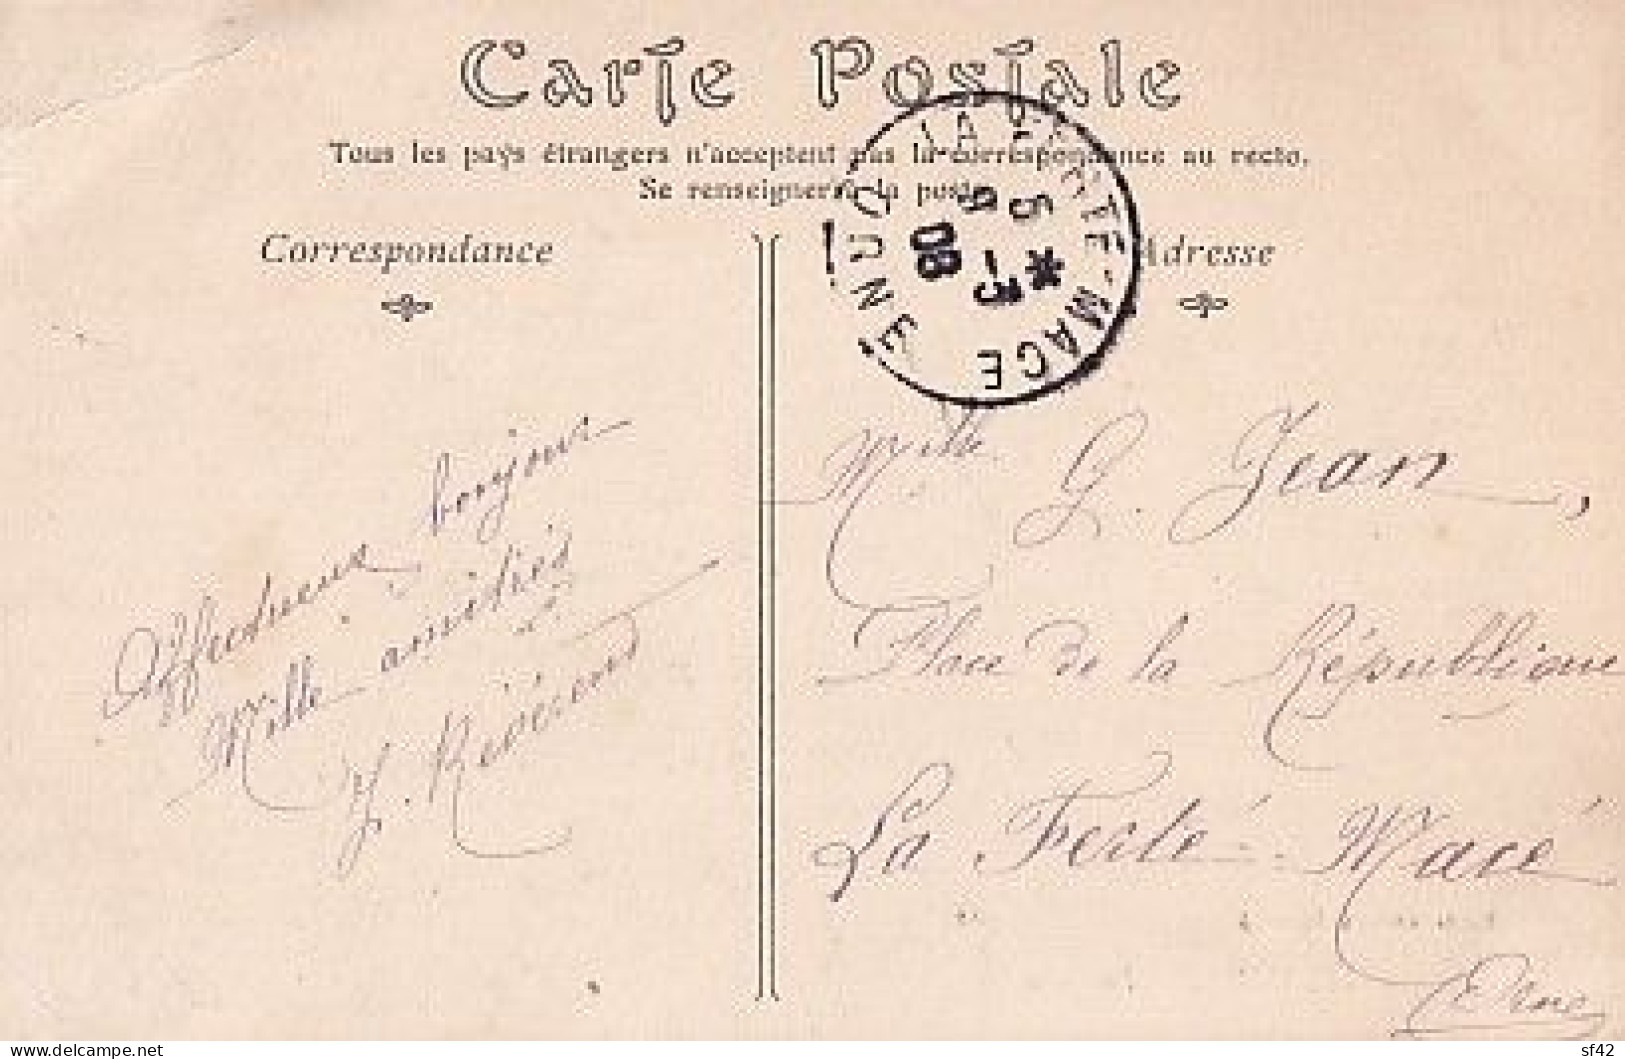 Carte Postale
Tous les pays étrangers n'acceptent pas la correspondance au recto.
Se renseigner à la poste
Correspondance
Adresse
LA FERTÉ-MACÉ
ORNE
5 *
9 -3
08
Affectueux bonjour
Mille amitiés
Y. Révérend
Melle G. Jean,
Place de la République
La Ferté-Macé
Orne
delcampe.net
sf42